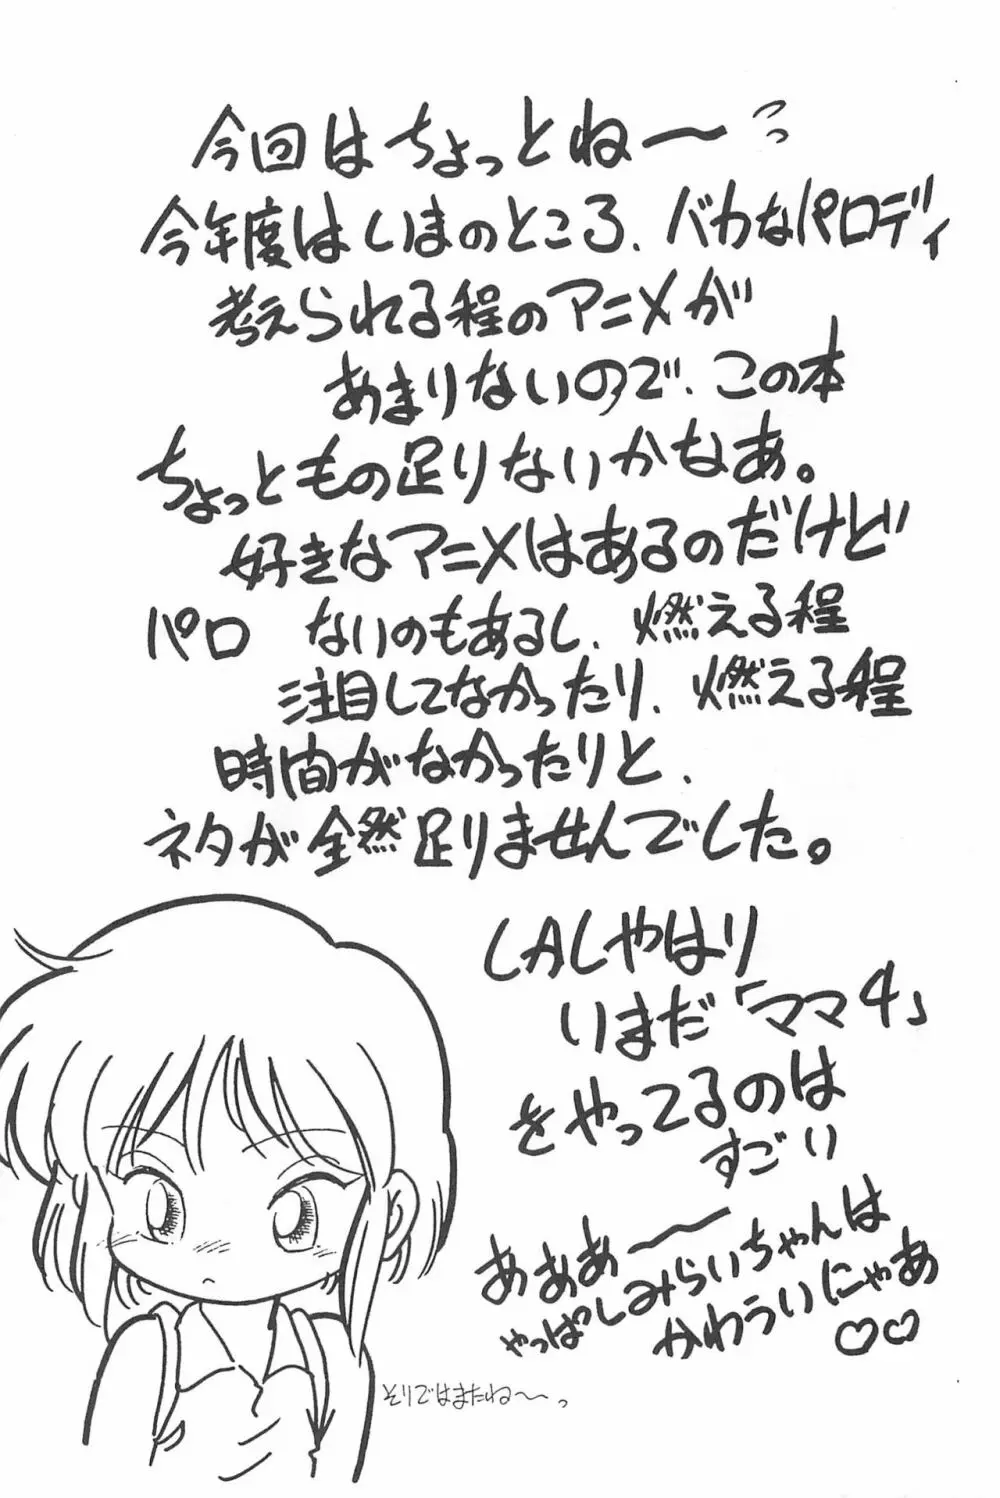 今回はちょっとね〜っ
今年度はいまのところ、バカなパロディ
考えられる程のアニメが
あまりないので、この本
ちょっともの足りないかなあ。
好きなアニメはあるのだけど
パロ ないのもあるし、燃える程
注目してなかったり、燃える程
時間がなかったりと、
ネタが全然足りませんでした。
しAしやはり
いまだ「ママ4」
をやってるのは
すごい
あああ〜
やっぱしみらいちゃんは
かわういにゃあ♡♡
そいではまたね〜っ